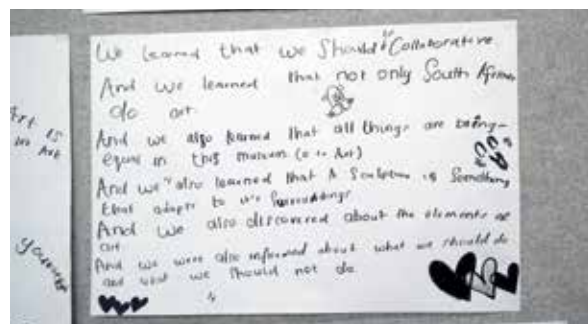 We learned that we Should be Collaborative.
And we learned that not only South African
do art.
And we also learned that all things are being
equal in this museum (e to Art)
And we also learned that A Sculpture is Something
that adapts to it's Surroundings
And we also discovered about the elements of
art.
And we were also informed about what we should do
and what we should not do.
Art is
Art
yourself